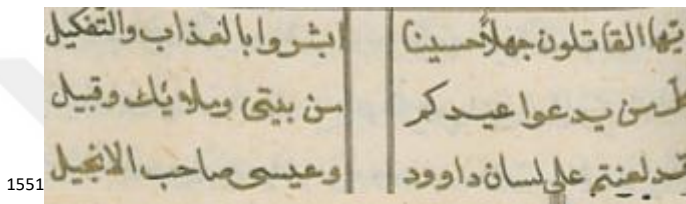 يها القاتلون جهلاً حسينا ابشروا بالعذاب والتنكيل
من يدعوا عيدكم من بيتى وملايك وقبيل
قد لعنتم على لسان داوود وعيسى صاحب الانجيل
1551